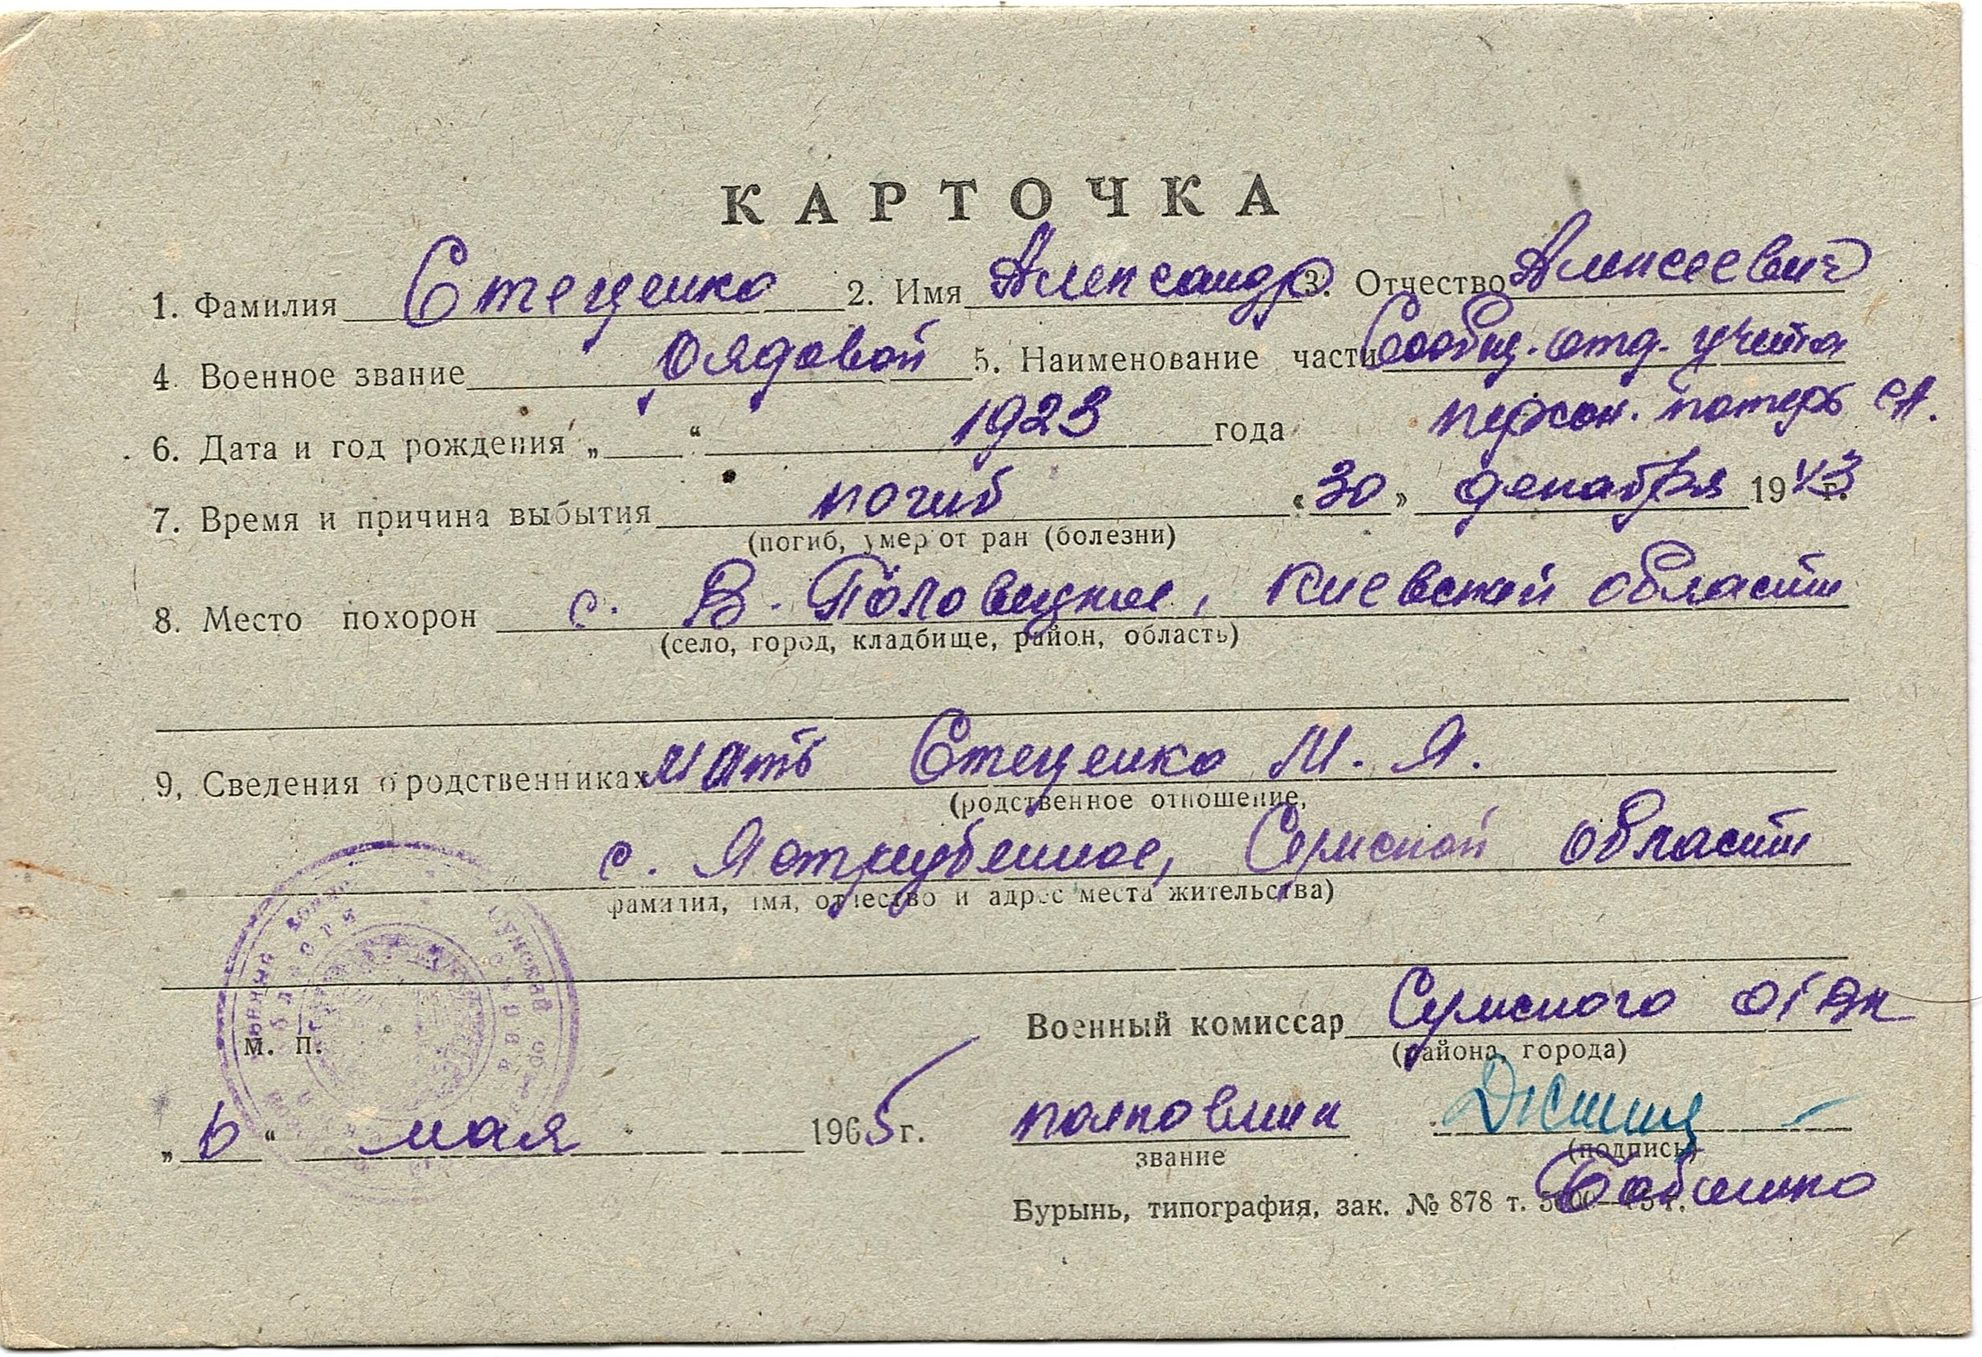 КАРТОЧКА
1. Фамилия Стеценко 2. Имя Александр 3. Отчество Алексеевич
4. Военное звание рядовой 5. Наименование части Сообщ. отд. учёта
персон. потерь СА.
6. Дата и год рождения „ “ 1923 года
7. Время и причина выбытия погиб «30» декабря 1943 г.
(погиб, умер от ран (болезни)
8. Место похорон с. В. Половецкое, Киевской области
(село, город, кладбище, район, область)
9, Сведения о родственниках мать Стеценко М. Я.
(родственное отношение,
с. Яструбенное, Сумской области
фамилия, имя, отчество и адрес места жительства)
Военный комиссар Сумского
(района, города)
м. п.
„6“ мая 1965 г. полковник
звание (подпись)
Бурынь, типография, зак. № 878 т.